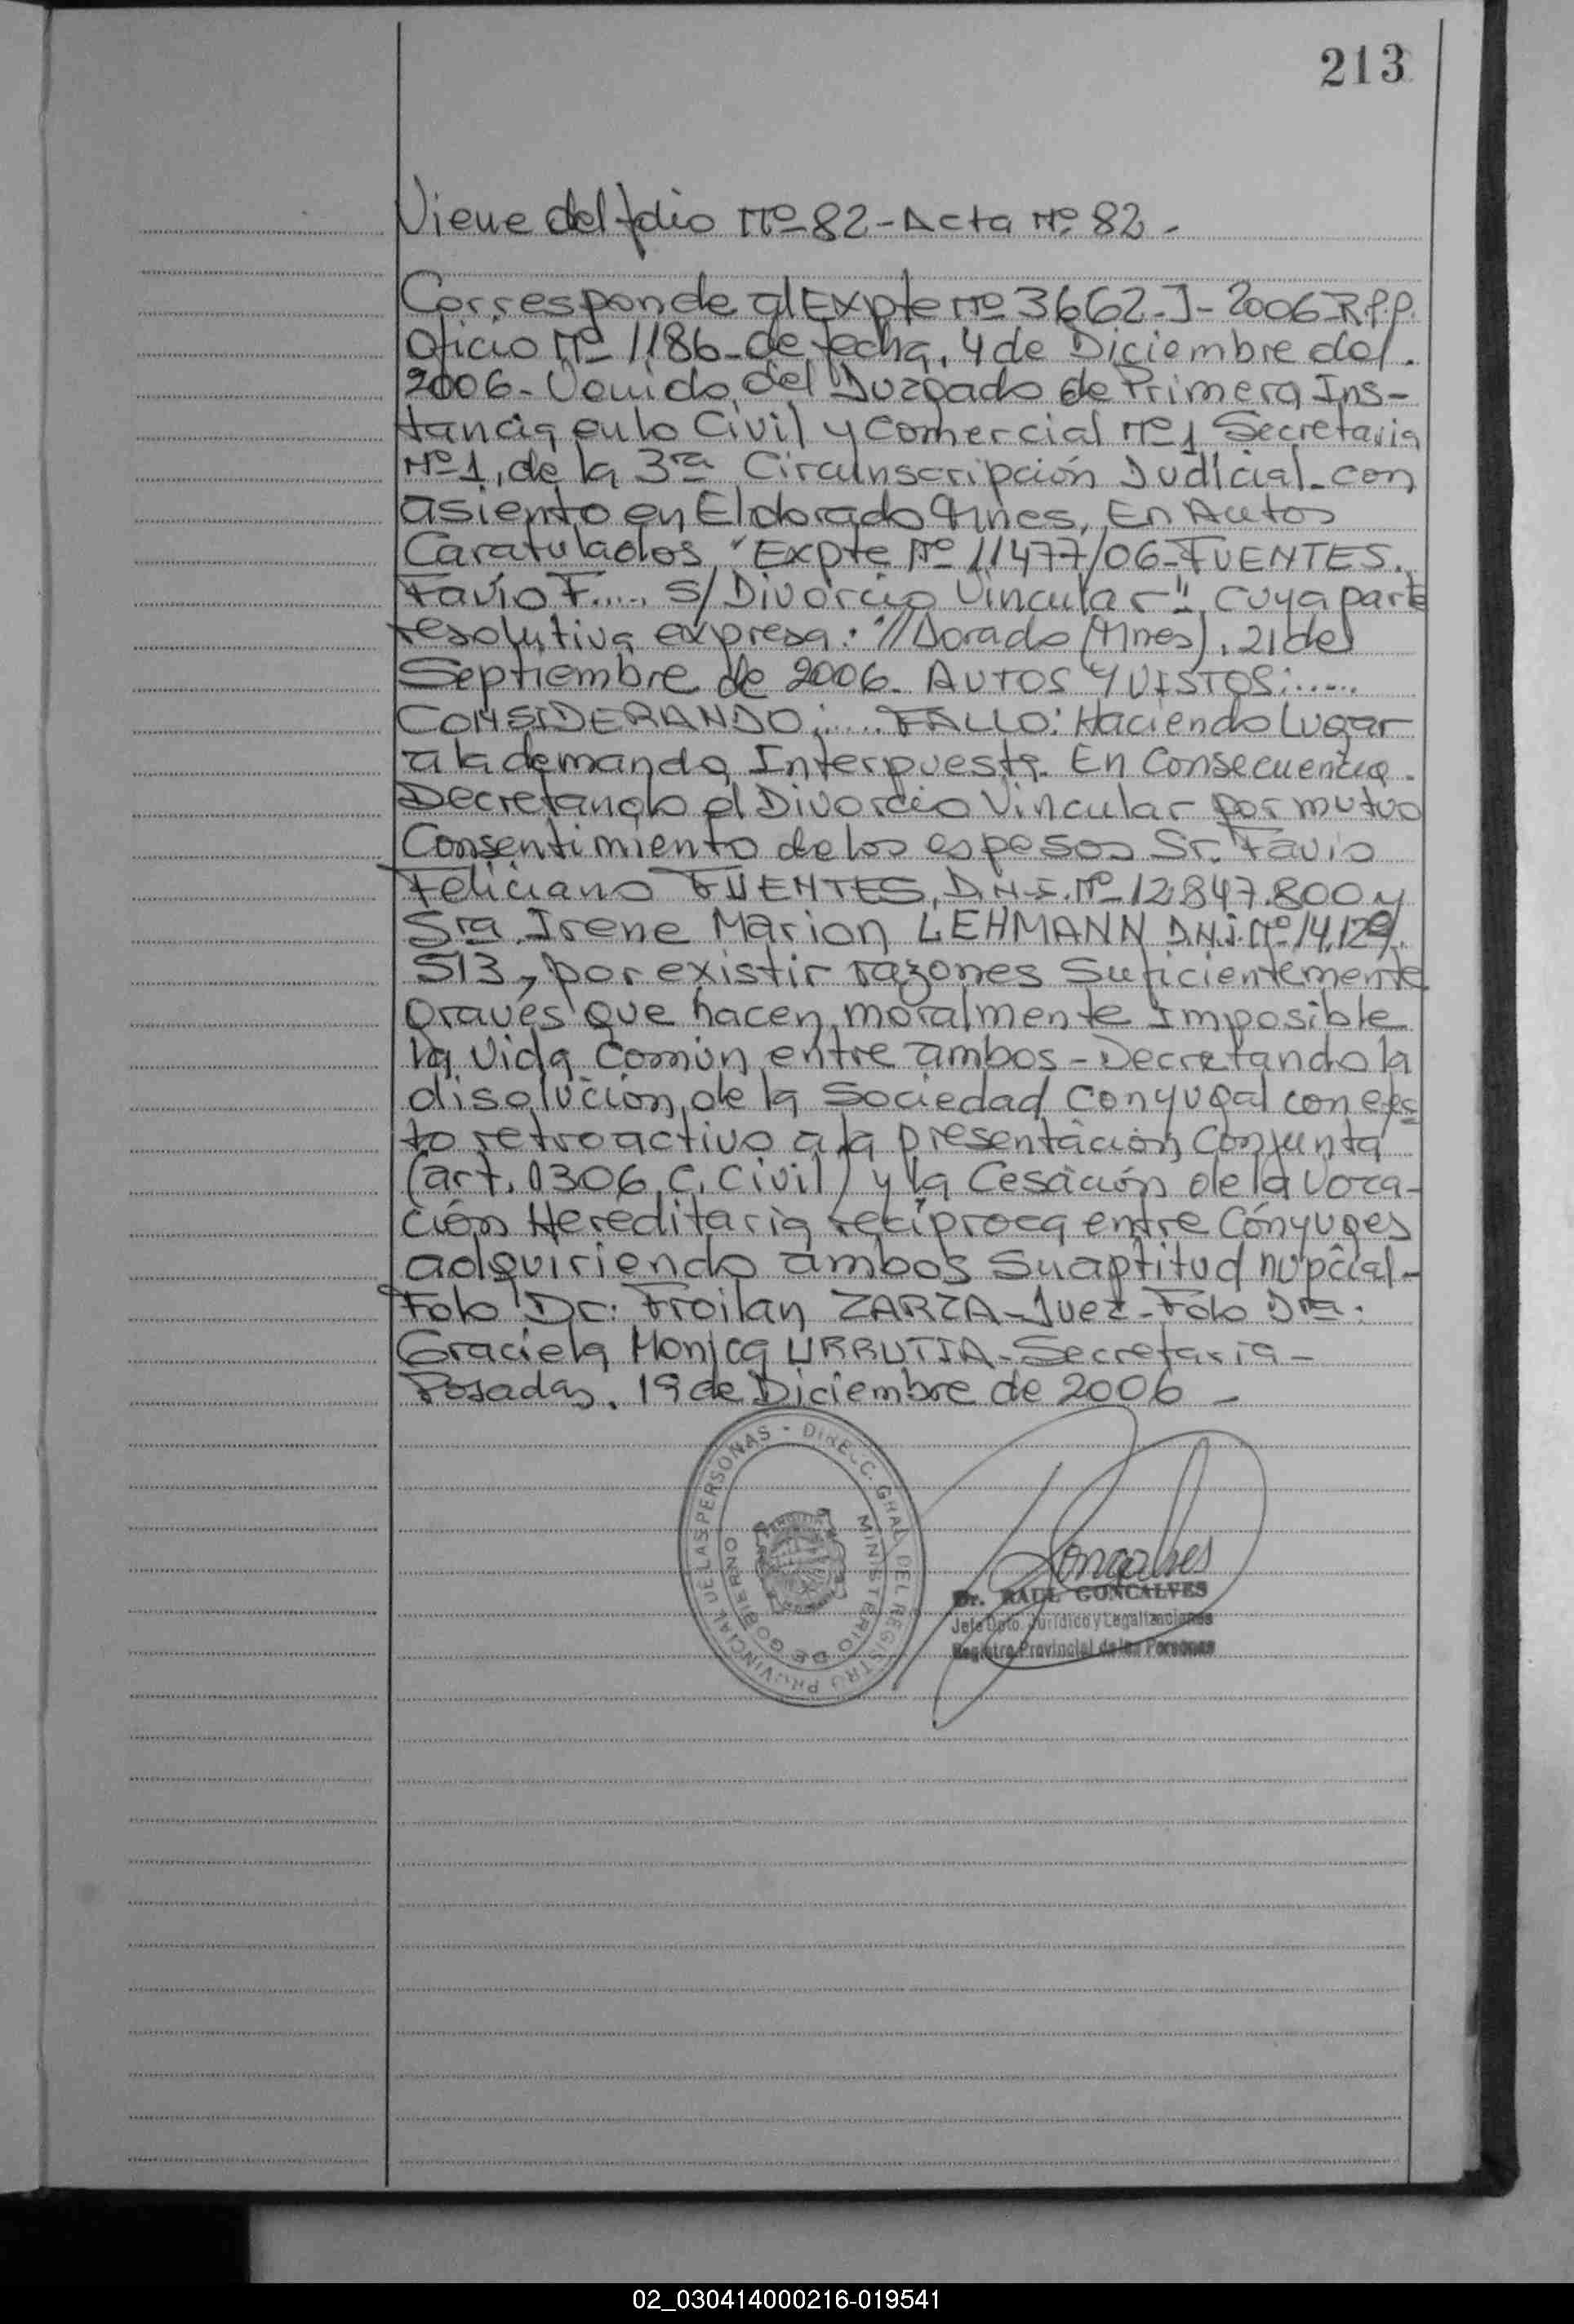 213
Viene del folio Nº 82 - Acta Nº 82 -
Corresponde al Expte Nº 3662-J-2006-R.P.P.
Oficio Nº 1186-de fecha, 4 de Diciembre del
2006-Venido del Juzgado de Primera Ins-
tancia en lo Civil y Comercial Nº 1 Secretaria
Nº 1, de la 3ra Circunscripción Judicial-con
asiento en Eldorado Mnes, En Autos
Caratulados "Expte Nº 11477/06-FUENTES.
Favio F..... S/Divorcio Vincular", cuya parte
resolutiva expresa: "//Dorado (Mnes), 21 de
Septiembre de 2006. AUTOS Y VISTOS:.....
CONSIDERANDO:.... FALLO: Haciendo Lugar
a la demanda Interpuesta. En Consecuencia.
Decretando el Divorcio Vincular por mutuo
Consentimiento de los esposos Sr. Favio
Feliciano FUENTES, D.N.I. Nº 12.847.800 y
Sra Irene Marion LEHMANN D.N.I. Nº 14.129.
513, por existir razones Suficientemente
graves que hacen moralmente Imposible
la vida Común entre ambos-Decretando la
disolución de la Sociedad Conyugal con efec-
to retroactivo a la presentación Conjunta
(art. 1306, C. Civil) y la Cesación de la Voca-
ción Hereditaria recíproca entre Cónyuges
adquiriendo ambos su aptitud nupcial-
Fdo Dr: Froilan ZARZA-Juez-Fdo Dra:
Graciela Monica URRUTIA-Secretaria-
Posadas, 19 de Diciembre de 2006-
DIRECC. GRAL DEL REGISTRO PROVINCIAL DE LAS PERSONAS -
MINISTERIO DE GOBIERNO
Goncalves
Dr. RAUL GONCALVES
Jefe Dpto. Jurídico y Legalizaciones
Registro Provincial de las Personas
02_030414000216-019541